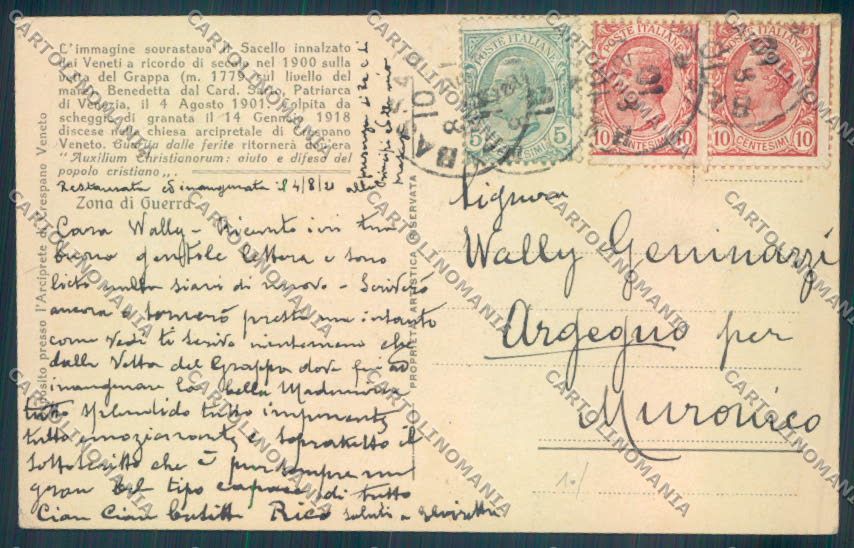 L'immagine sovrastava il Sacello innalzato
dai Veneti a ricordo di secoli nel 1900 sulla
vetta del Grappa (m. 1779 sul livello del
mare). Benedetta dal Card. Sarto, Patriarca
di Venezia, il 4 Agosto 1901. Colpita da
scheggie di granata il 14 Gennaio 1918
discese nella chiesa arcipretale di Crespano
Veneto. Guarita dalle ferite ritornerà dov'era
"Auxilium Christianorum: aiuto e difesa del
popolo cristiano".
Restaurata ed inaugurata il 4/8/21 alla
presenza di
Zona di Guerra
Deposito presso l'Arciprete di Crespano Veneto
Cara Wally - Ricevuto ivi tua
buona gentile lettera e sono
lieto nulla siavi di nuovo - Scriverò
ancora e tornerò presto ma intanto
come vedi ti scrivo nientemeno che
dalla Vetta del Grappa dove fui ad
inaugurare la bella Madonna
tutto splendido tutto imponente
tutto emozionante e sopratutto il
sottoscritto che è pur sempre un
gran bel tipo capace di tutto
Ciau Ciau Rico saluti a
PROPRIETÀ ARTISTICA RISERVATA
POSTE ITALIANE
5 CENTESIMI 5
POSTE ITALIANE
10 CENTESIMI 10
POSTE ITALIANE
10 CENTESIMI 10
Signora
Wally Geminazzi
Argegno per
Muronico
CARTOLINOMANIA